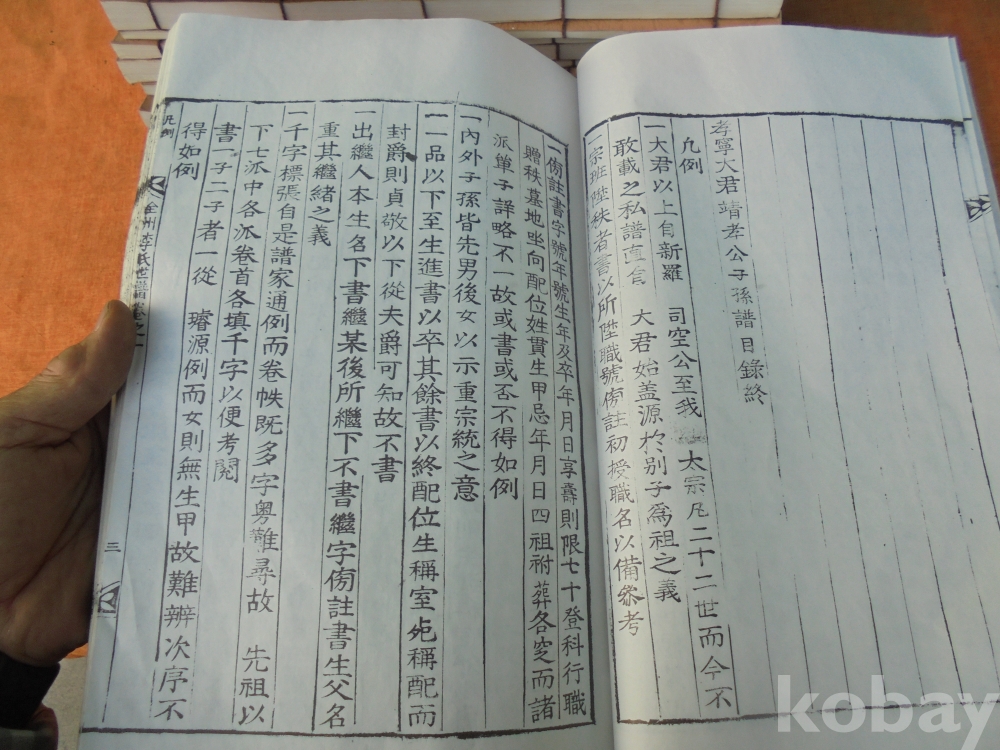 孝寧大君靖孝公子孫譜目錄終
凡例
一大君以上自新羅 司空公至我 太宗凡二十二世而今不
敢載之私譜直自 大君始盖源於別子爲祖之義
一宗班陞秩者書以所陞職號傍註初授職名以備叅考
一傍註書字號年號生年及卒年月日享壽則限七十登科行職
贈秩墓地坐向配位姓貫生甲忌年月日四祖祔葬各窆而諸
派單子詳略不一故或書或否不得如例
一內外子孫皆先男後女以示重宗統之意
一一品以下至生進書以卒其餘書以終配位生稱室死稱配而
封爵則貞敬以下從夫爵可知故不書
一出繼人本生名下書繼某後所繼下不書繼字傍註書生父名
重其繼緖之義
一千字標張自是譜家通例而卷帙旣多字粤難尋故 先祖以
下七派中各派卷首各塡千字以便考閱
書一子二子者一從 璿源例而女則無生甲故難辨次序不
得如例
凡例
全州李氏世譜卷之一
三
kobay